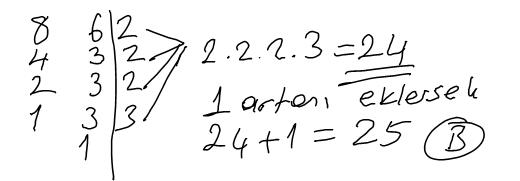 8 6 | 2
4 3 | 2
2 3 | 2
1 3 | 3
1
2.2.2.3 = 24
1 artanı eklersek
24+1 = 25 B